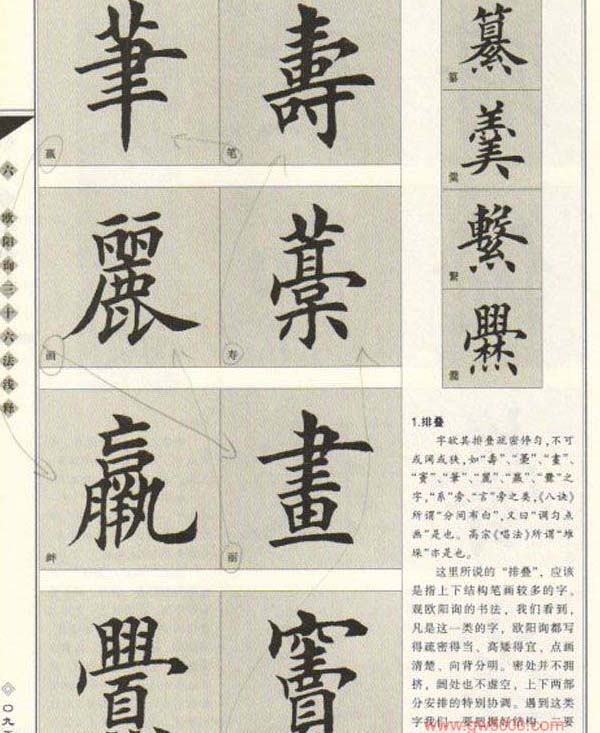 筆
壽
赢
笔
麗
藁
画
寿
羸
畫
衅
丽
釁
竇
纂
纂
羹
羹
繫
繫
爨
爨
六 欧阳询三十六法浅释
〇九
1.排叠
字欲其排叠疏密停匀,不可
或阔或狭,如“壽”、“藁”、“畫”、
“竇”、“筆”、“麗”、“羸”、“爨”之
字,“系”旁、“言”旁之类,《八诀》
所谓“分间布白”,又曰“调匀点
画”是也。高宗《唱法》所谓“堆
垛”亦是也。
这里所说的“排叠”,应该
是指上下结构笔画较多的字。
观欧阳询的书法,我们看到,
凡是这一类的字,欧阳询都写
得疏密得当、高矮得宜、点画
清楚、向背分明。密处并不拥
挤,阔处也不虚空,上下两部
分安排的特别协调。遇到这类
字我们一要把握好结构,二要